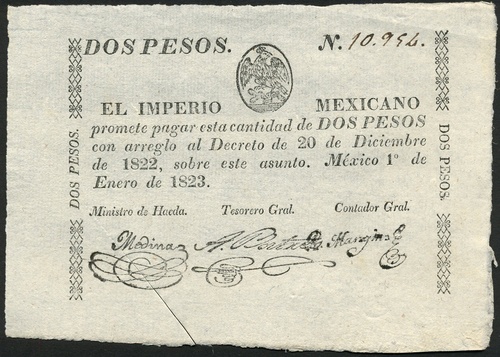 DOS PESOS. N. 10.954.
EL IMPERIO MEXICANO
promete pagar esta cantidad de DOS PESOS
con arreglo al Decreto de 20 de Diciembre
de 1822, sobre este asunto. México 1º de
Enero de 1823.
Ministro de Haeda. Tesorero Gral. Contador Gral.
Medina
DOS PESOS.
DOS PESOS.